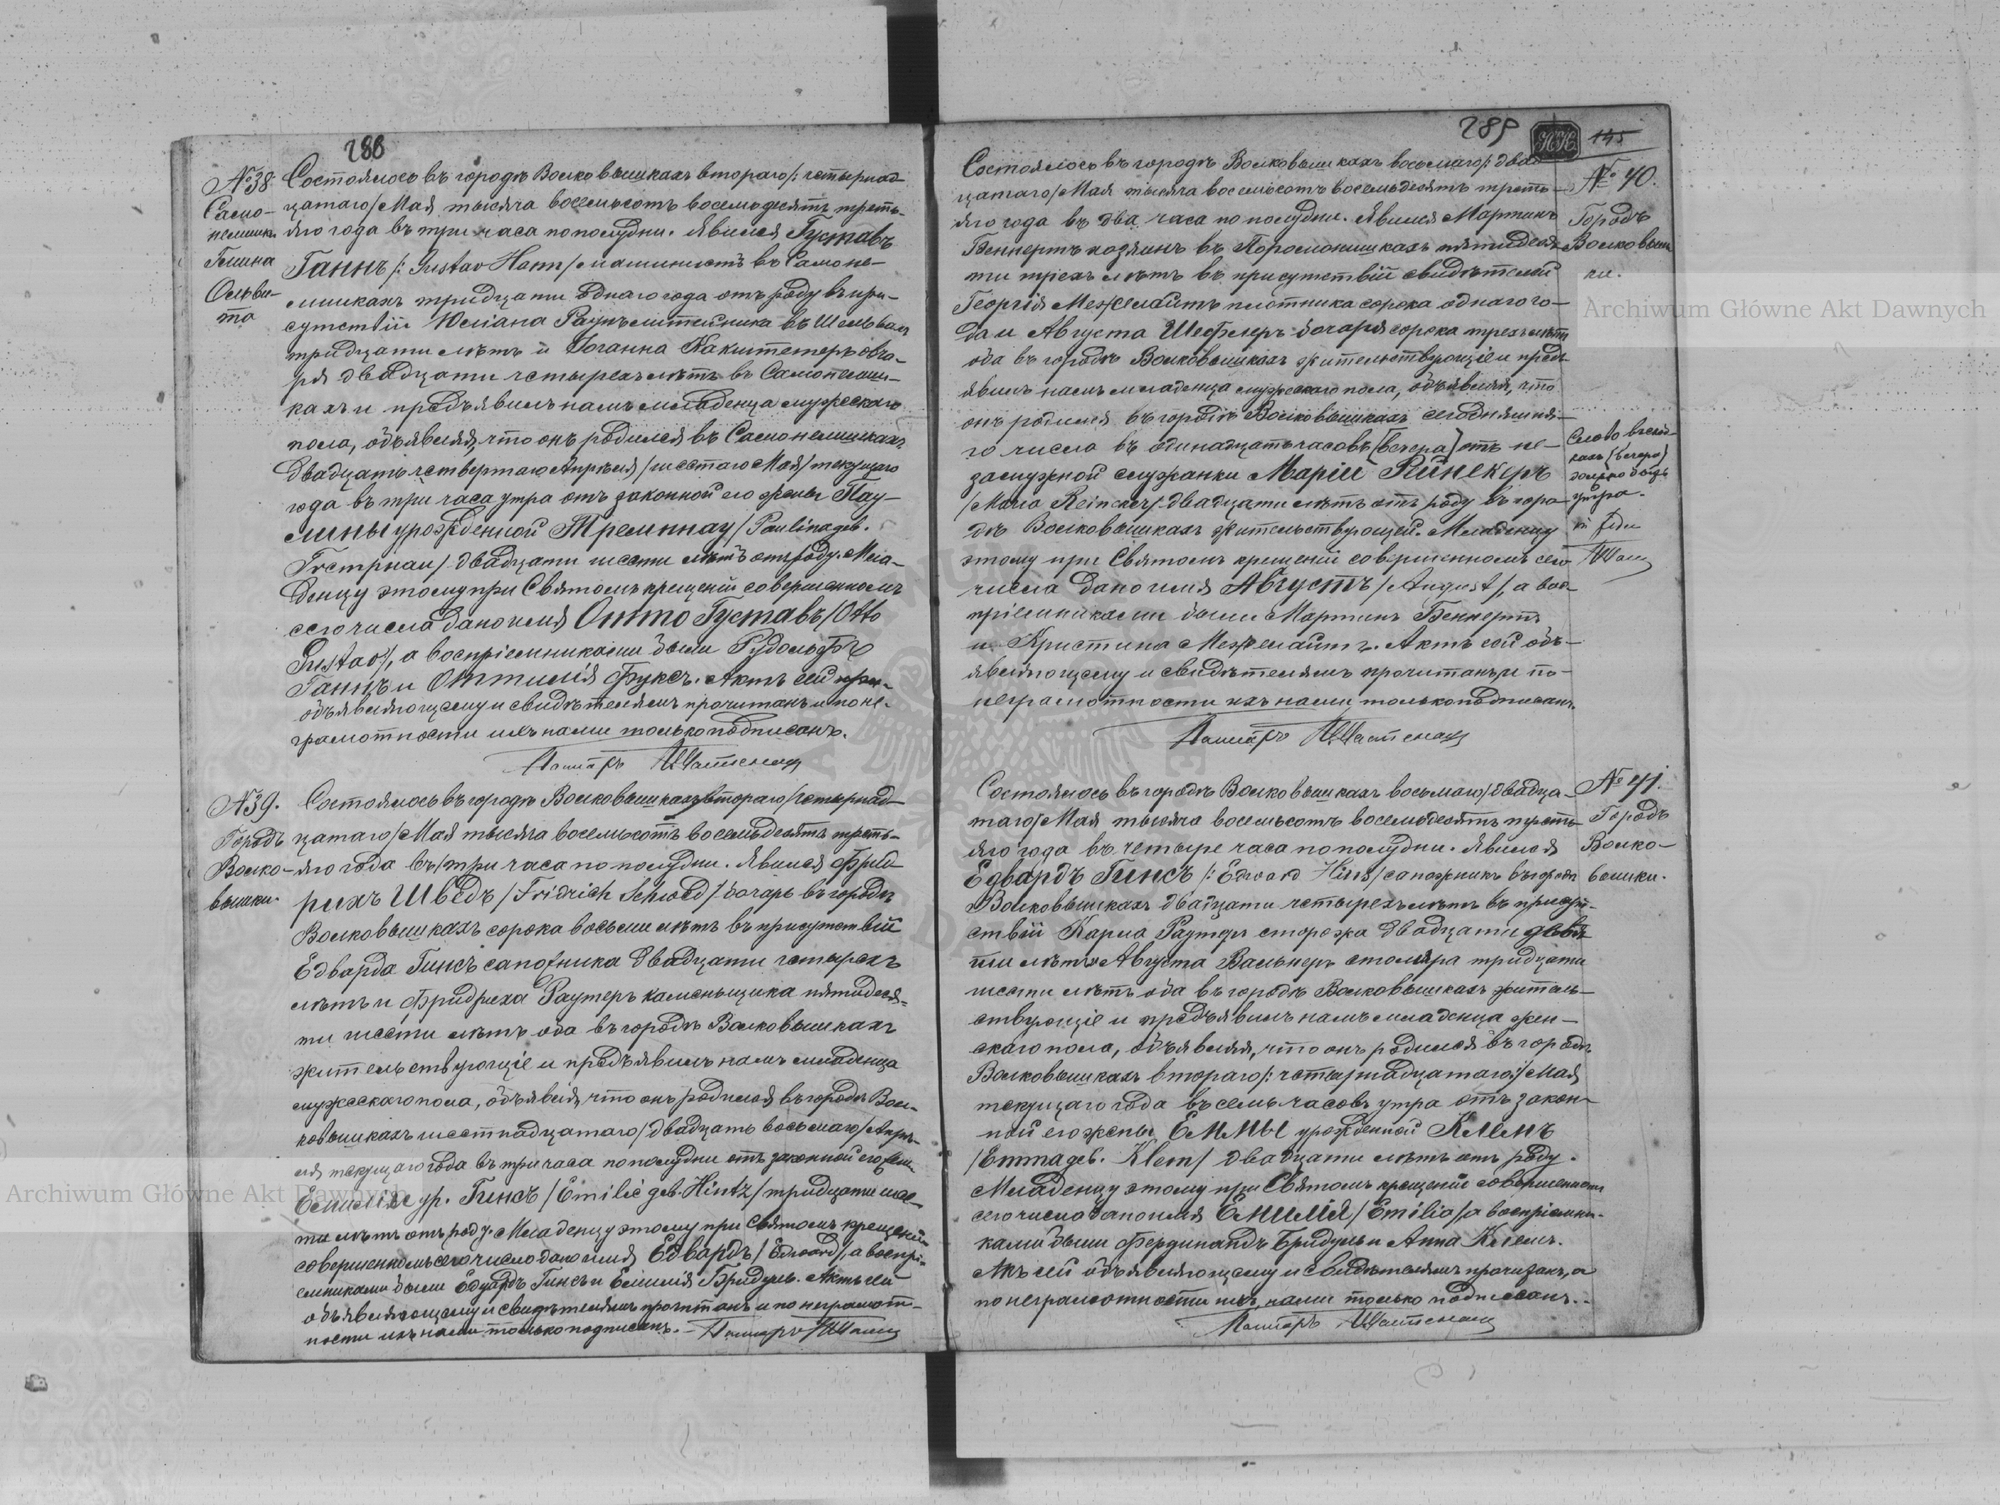 288
№38.
Само-
нелишк.
Гмина
Ольви-
та
Состоялось въ городѣ Волковышкахъ втораго /: четырнад-
цатаго/ Мая тысяча восемьсотъ восемьдесятъ треть-
яго года въ три часа пополудни. Явился Густавъ
Ганнъ /: Gustav Hann/ машинистъ въ Самоне-
лишкахъ тридцати однаго года отъ роду въ при-
сутствіи Юліана литейника въ
тридцати лѣтъ и Іоганна овча-
ря двадцати четырехъ лѣтъ въ Самонелиш-
кахъ и предъявилъ намъ младенца мужескаго
пола, объявляя, что онъ родился въ Самонелишкахъ
двадцать четвертаго Апрѣля /шестаго Мая/ текущаго
года въ три часа утра отъ законной его жены Пау-
лины урожденной Тремпнау /Paulina geb.
двадцати шести лѣтъ отъ роду. Мла-
денцу этому при Святомъ крещеніи совершенномъ
сего числа дано имя Отто Густавъ /Otto
Gustav/, а воспріемниками были Рудольфъ
Ганнъ и Оттилія Фуксъ. Актъ сей
объявляющему и свидѣтелямъ прочитанъ и по не-
грамотности ихъ нами только подписанъ.
Пасторъ
№39.
Городъ
Волко-
вышки.
Состоялось въ городѣ Волковышкахъ втораго /четырнад-
цатаго/ Мая тысяча восемьсотъ восемьдесятъ треть-
яго года въ три часа пополудни. Явился Фрид-
рихъ Шведъ /Fridrich Schwed/ бочарь въ городѣ
Волковышкахъ сорока восьми лѣтъ въ присутствіи
Едварда Гинсъ сапожника двадцати четырехъ
лѣтъ и Фридриха Раутеръ каменьщика пятидеся-
ти шести лѣтъ, оба въ городѣ Волковышкахъ
жительствующіе и предъявилъ намъ младенца
мужескаго пола, объявляя, что онъ родился въ городѣ Вол-
ковышкахъ шестнадцатаго /двадцать восьмаго/ Апрѣ-
ля текущаго года въ три часа пополудни отъ законной его жены
Емиліи ур. Гинсъ /Emilie geb. Hintz/ тридцати шес-
ти лѣтъ отъ роду. Младенцу этому при Святомъ крещеніи
совершенномъ сего числа дано имя Едвардъ /Edward/, а воспрі-
емниками были Едуардъ Гинсъ и Емилія Бридуль. Актъ сей
объявляющему и свидѣтелямъ прочитанъ и по неграмот-
ности ихъ нами только подписанъ. Пасторъ
289
145
№ 40.
Городъ
Волковыш-
ки.
Состоялось въ городѣ Волковышкахъ восьмаго /: двад-
цатаго/ Мая тысяча восемьсотъ восемьдесятъ треть-
яго года въ два часа пополудни. Явился Мартинъ
Беннертъ хозяинъ въ пятидеся-
ти трехъ лѣтъ въ присутствіи свидѣтелей
Георгія Межелайтъ плотника сорока однаго го-
да и Августа Шефлеръ бочаря сорока трехъ лѣтъ
оба въ городѣ Волковышкахъ жительствующіе и предъ-
явилъ намъ младенца мужескаго пола, объявляя, что
онъ родился въ городѣ Волковышкахъ сегодняшня-
го числа въ одинадцать часовъ [вечера] отъ не-
замужной служанки Маріи Рейнекеръ
/Maria Reineker/ двадцати лѣтъ отъ роду въ горо-
дѣ Волковышкахъ жительствующей. Младенцу
этому при Святомъ крещеніи совершенномъ сего
числа дано имя Августъ /August/, а вос-
пріемниками были Мартинъ Беннертъ
и Кристина Межелайтъ. Актъ сей объ-
являющему и свидѣтелямъ прочитанъ и по-
неграмотности ихъ нами только подписанъ.
Пасторъ
Слово въ скоб-
кахъ [вечера]
должно быть
утра.
№ 41.
Городъ
Волко-
вышки.
Состоялось въ городѣ Волковышкахъ восьмаго /двадца-
таго/ Мая тысяча восемьсотъ восемьдесятъ треть-
яго года въ четыре часа пополудни. Явился
Едвардъ Гинсъ /: Edward Hins/ сапожникъ въ городѣ
Волковышкахъ двадцати четырехъ лѣтъ въ присут-
ствіи Карла Раутеръ сторожа двадцати девя-
ти лѣтъ и Августа Вальнеръ столяра тридцати
шести лѣтъ оба въ городѣ Волковышкахъ житель-
ствующіе и предъявилъ намъ младенца жен-
скаго пола, объявляя, что онъ родился въ городѣ
Волковышкахъ втораго /: четырнадцатаго:/ Мая
текущаго года въ семь часовъ утра отъ закон-
ной его жены Еммы урожденной Клемъ
/Emma geb. Klem/ двадцати лѣтъ отъ роду.
Младенцу этому при Святомъ крещеніи совершенномъ
сего числа дано имя Емилія /Emilia/, а воспріемни-
ками были Фердинандъ Бридуль и Анна Клемъ.
Актъ сей объявляющему и свидѣтелямъ прочитанъ, а
по неграмотности ихъ нами только подписанъ.
Пасторъ
Archiwum Główne Akt Dawnych
Archiwum Główne Akt Dawnych